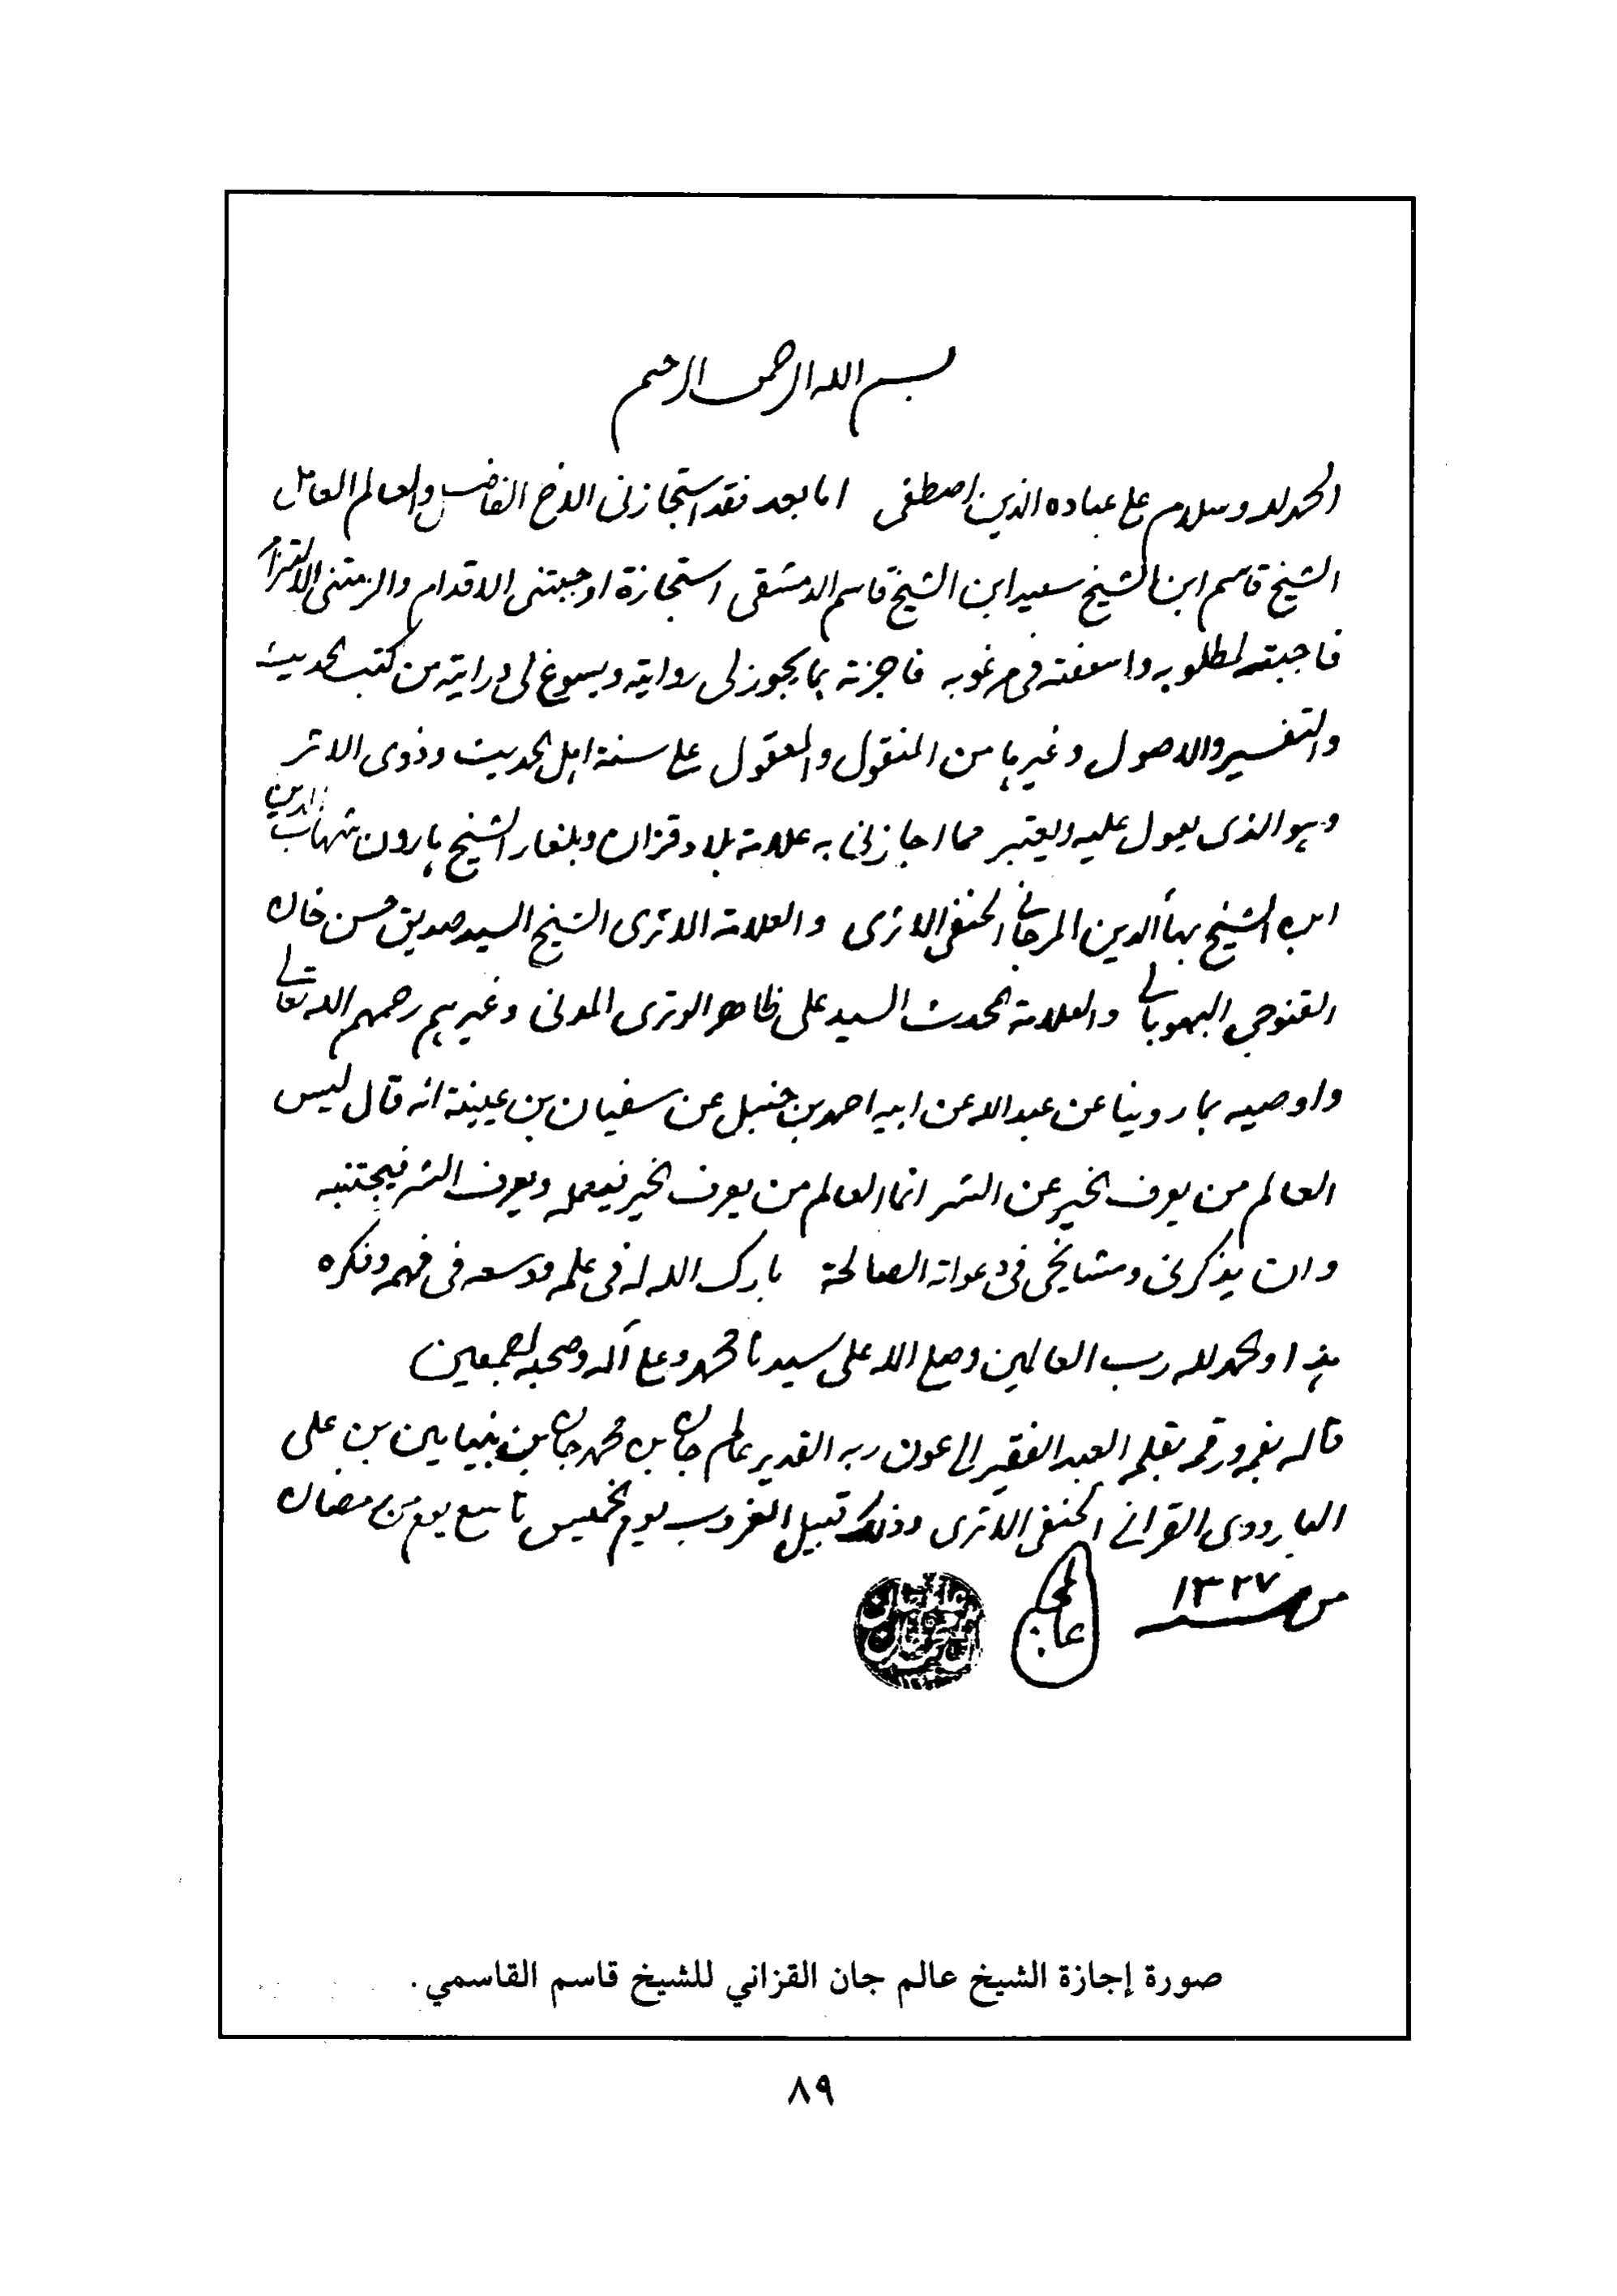 بسم الله الرحمن الرحيم
الحمد لله وسلام على عباده الذين اصطفى اما بعد فقد استجازنى الاخ الفاضل والعالم العامل
الشيخ قاسم ابن الشيخ سعيد ابن الشيخ قاسم الدمشقى استجازة اوجبتنى الاقدام والزمتنى الالتزام
فاجبته لمطلوبه واسعفته فى مرغوبه فاجزته بما يجوز لى روايته ويسوغ لى درايته من كتب الحديث
والتفسير والاصول وغيرها من المنقول والمعقول على سنة اهل الحديث وذوى الاثر
وهو الذى يعول عليه ويعتبر مما اجازنى به علامة بلاد قزان وبلغار الشيخ هارون شهاب الدين
ابن الشيخ بهاء الدين المرجانى الحنفى الاثرى والعلامة الاثرى الشيخ السيد صديق حسن خان
القنوجى البهوبالى والعلامة المحدث السيد على ظاهر الوترى المدنى وغيرهم رحمهم الله تعالى
واوصيه بما روينا عن عبد الله عن ابيه احمد بن حنبل عن سفيان بن عيينة انه قال ليس
العالم من يعرف الخير عن الشر انما العالم من يعرف الخير فيعمله ويعرف الشر فيجتنبه
وان يذكرنى ومشايخى فى دعواته الصالحة بارك الله له فى علمه ووسعه فى فهمه وفكره
هذا والحمد لله رب العالمين وصلى الله على سيدنا محمد وعلى آله وصحبه اجمعين
قاله بفمه ورقمه بقلمه العبد الفقير الى عون ربه القدير عالم جان بن محمد جان بن بنيامين بن على
البارودى القزانى الحنفى الاثرى وذلك قبيل الغروب يوم الخميس تاسع يوم من رمضان
من سنة ١٣٢٧
عالمجان
صورة إجازة الشيخ عالم جان القزاني للشيخ قاسم القاسمي .
٨٩